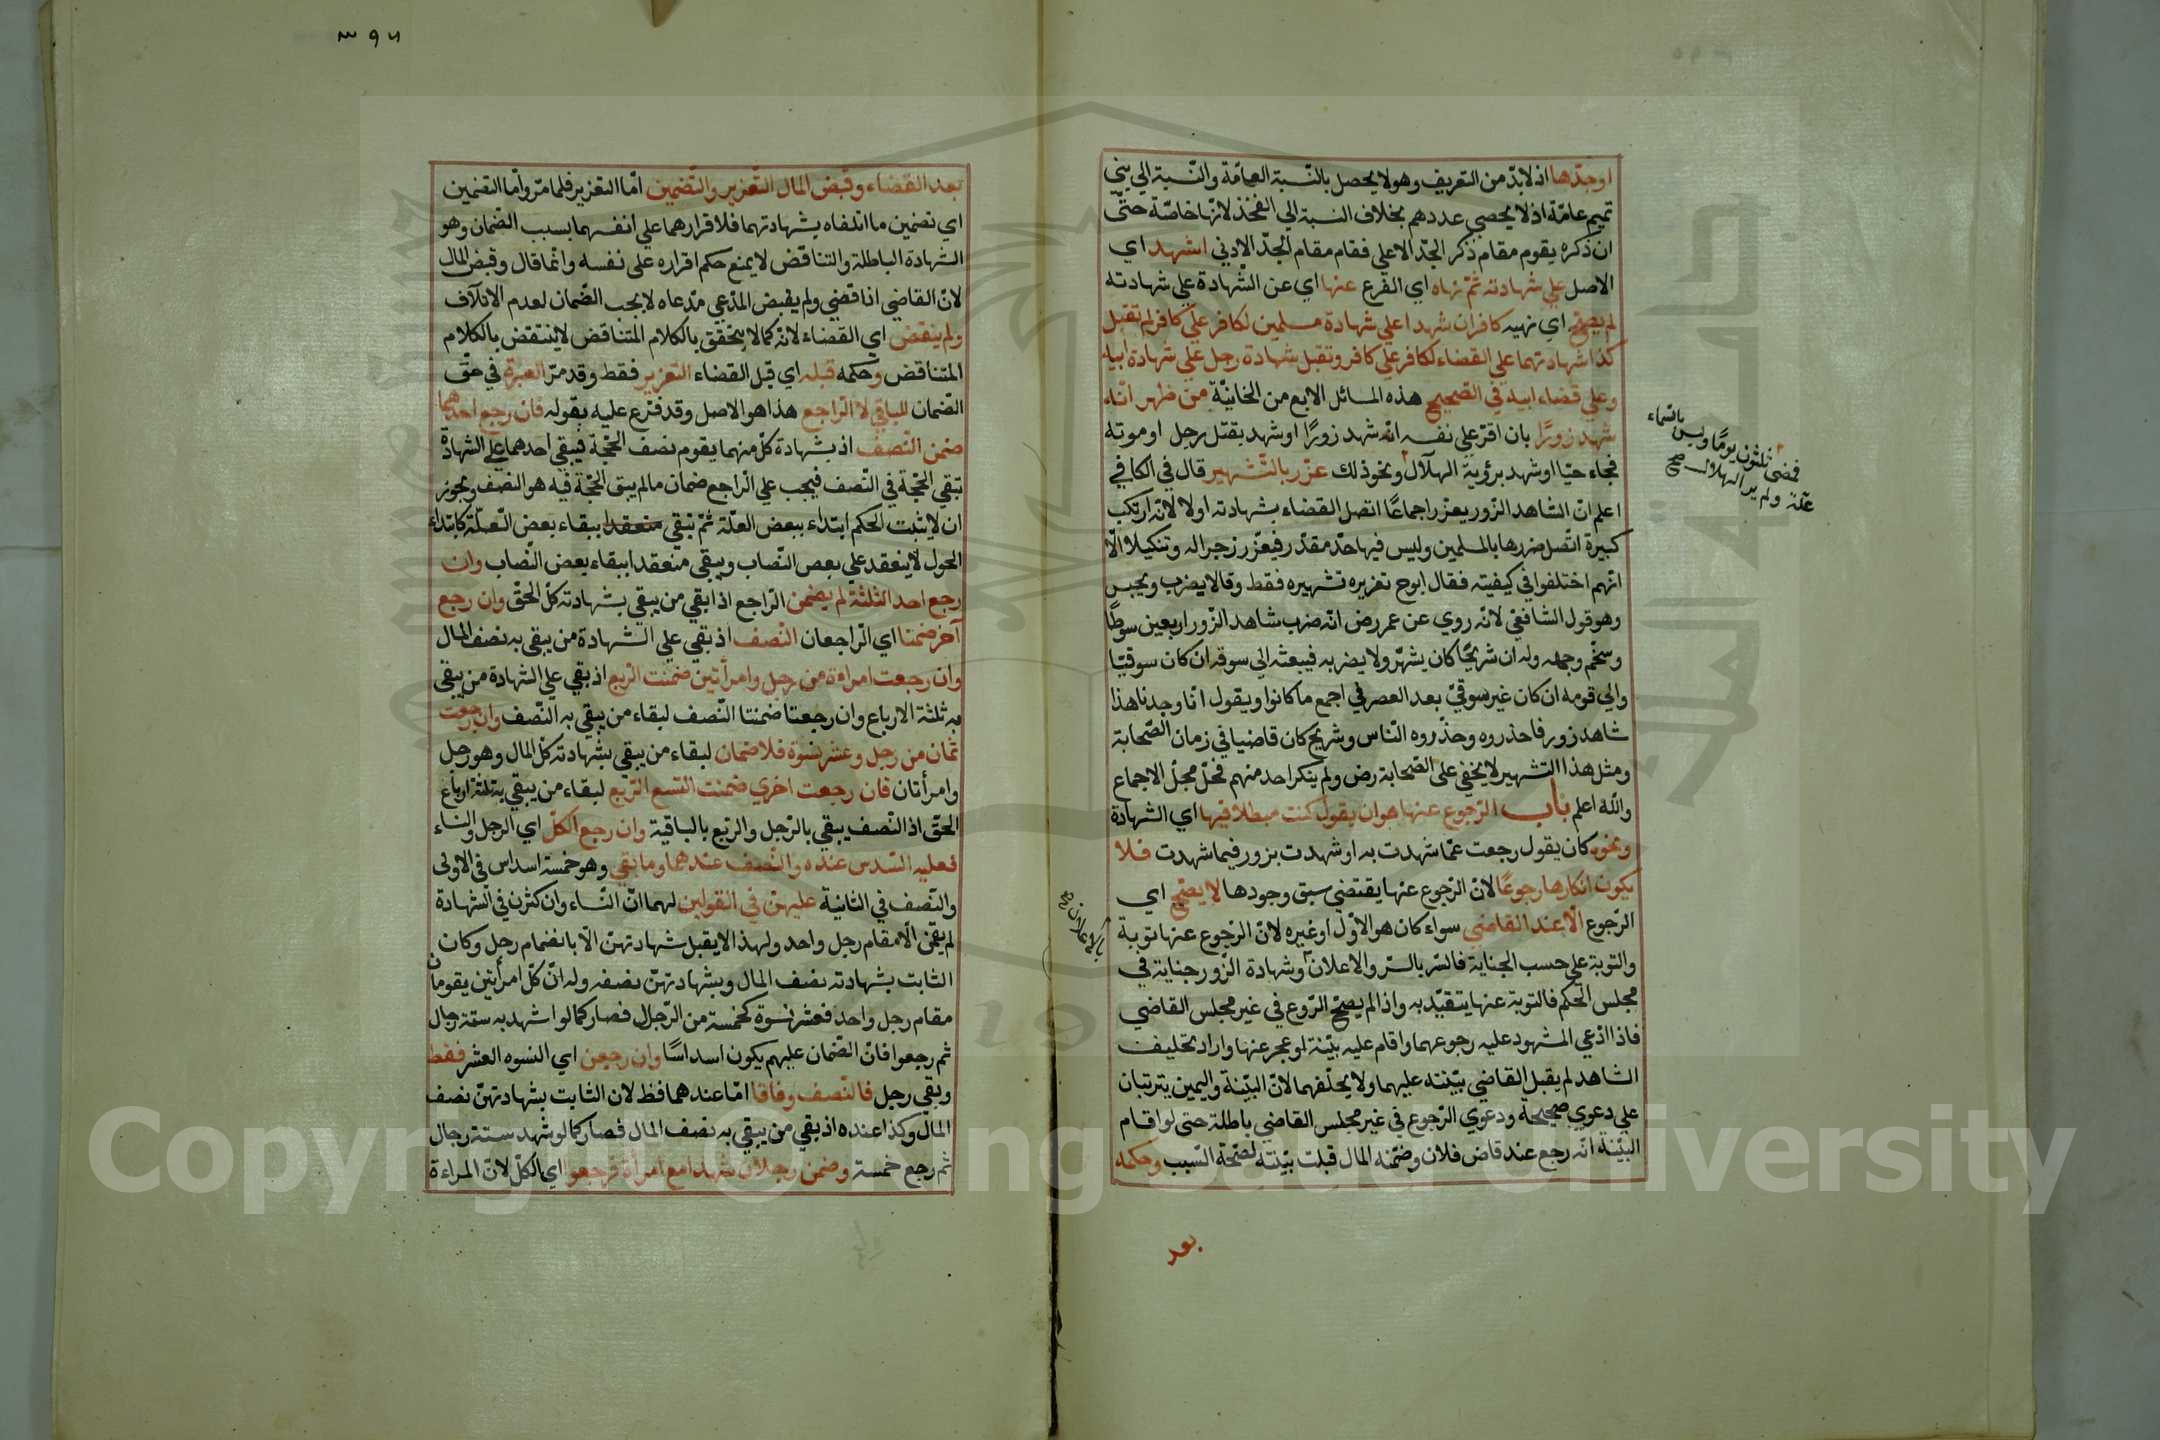 اوجدّها اذ لا بدّ من التعريف وهو لا يحصل بالنّسبة العامّة والنّسبة الي بني
تميم عامّة اذ لا يحصي عددهم بخلاف النسبة الي الفخذ لانّها خاصّة حتّي
ان ذكره يقوم مقام ذكر الجدّ الاعلي فقام مقام الجدّ الادني اشهد اي
الاصل علي شهادته ثمّ نهاه اي الفرع عنها اي عن الشّهادة علي شهادته
لم يصحّ اي نهيه كافران شهدا علي شهادة مسلمين لكافر علي كافر لم تقبل
كذا شهادتهما علي القضاء لكافر علي كافر وتقبل شهادة رجل علي شهادة ابيه
وعلي قضاء ابيه في الصّحيح هذه المسائل الاربع من الخانيّة من ظهر انّه
شهد زورًا بان اقرّ علي نفسه انّه شهد زورًا او شهد بقتل رجل او موته
فجاء حيّا او شهد برؤية الهلال ونحو ذلك عزّر بالتّشهير قال في الكافي
اعلم انّ الشاهد الزّور يعزّر اجماعًا اتصل القضاء بشهادته اولا لانّه ارتكب
كبيرة اتّصل ضررها بالمسلمين وليس فيها حدّ مقدّر فيعزّر زجرا له وتنكيلا الّا
انّهم اختلفوا في كيفيته فقال ابوح تعزيره تشهيره فقط وقالا يضرب ويحبس
وهو قول الشافعّي لانّه روي عن عمر رض انّه ضرب شاهد الزّور اربعين سوطًا
وسخّم وجهه وله ان شريحًا كان يشهّر ولا يضربه فيبعثه الي سوقه ان كان سوقيّا
والي قومه ان كان غير سوقيّ بعد العصر في اجمع ما كانوا ويقول انّا وجدنا هذا
شاهد زور فاحذروه وحذّروه النّاس وشريح كان قاضيا في زمان الصّحابة
ومثل هذا التشهير لا يخفي علي الصّحابة رض ولم ينكر احد منهم فحلّ محلّ الاجماع
واللّه اعلم باب الرّجوع عنها هو ان يقول كنت مبطلا فيها اي الشهادة
ونحوه كان يقول رجعت عمّا شهدت به او شهدت بزور فيما شهدت فلا
يكون انكارها رجوعًا لانّ الرّجوع عنها يقتضي سبق وجودها لا يصحّ اي
الرّجوع الّا عند القاضي سواء كان هو الاوّل او غيره لانّ الرّجوع عنها توبة
والتوبة علي حسب الجناية فالسّر بالسّر والاعلان وشهادة الزّور جناية في
مجلس الحكم فالتوبة عنها يتقيّد به واذا لم يصحّ الرّوع في غير مجلس القاضي
فاذا ادّعي المشهود عليه رجوعهما واقام عليه بيّنة لو عجز عنها واراد تحليف
الشاهد لم يقبل القاضي بيّنته عليهما ولا يحلّفهما لانّ البيّنة واليمين يترتبان
علي دعوي صحيحة ودعوي الرّجوع في غير مجلس القاضي باطلة حتي لو اقام
البيّنة انّه رجع عند قاض فلان وضمّنه المال قبلت بيّنته لصّحة السّبب وحكمه
بعد
فمضي ثلثون يومًا وليس بالسّماء
علّة ولم ير الهلال صح
بالاعلان صح
٣٩٦
بعد القضاء وقبض المال التّعزير والتّضمين امّا التعزير فلما مرّ وامّا التضمين
اي تضمين ما اتلفاه بشهادتهما فلاقرارهما علي انفسهما بسبب الضّمان وهو
الشّهادة الباطلة والتناقض لا يمنع حكم اقراره علي نفسه وانّما قال وقبض المال
لانّ القاضي اذا قضي ولم يقبض المدّعي مدّعاه لا يجب الضّمان لعدم الاتلاف
ولم ينقض اي القضاء لانّه كما لا يتحقّق بالكلام المتناقض لا ينتقض بالكلام
المتناقض وحكمه قبله اي قبل القضاء التعزير فقط وقد مرّ العبرة في حقّ
الضّمان للباقي لا الرّاجع هذا هو الاصل وقد فرّع عليه بقوله فان رجع احدهما
ضمن النّصف اذ بشهادة كلّ منهما يقوم نصف الحجّة فيبقي احدهما علي الشهادة
تبقي الحجّة في النّصف فيجب علي الرّاجع ضمان ما لم يبق الحجّة فيه هو النصف ويجوز
ان لا يثبت الحكم ابتداء ببعض العلّة ثمّ تبقي منعقدا ببقاء بعض العلّة كابتداء
الحول لا ينعقد علي بعض النّصاب ويبقي منعقدا ببقاء بعض النّصاب وان
رجع احد الثلثة لم يضمن الرّاجع اذا بقي من يبقي بشهادته كلّ الحقّ وان رجع
آخر ضمنا اي الرّاجعان النّصف اذ بقي علي الشهادة من يبقي به نصف المال
وان رجعت امراءة من رجل وامرأتين ضمنت الرّبع اذ بقي علي الشهادة من يبقي
به ثلثة الارباع وان رجعتا ضمنتا النّصف لبقاء من يبقي به النّصف وان رجعت
ثمان من رجل وعشر نسوة فلا ضمان لبقاء من يبقي بشهادته كلّ المال وهو رجل
وامرأتان فان رجعت اخري ضمنت التسع الرّبع لبقاء من يبقي به ثلثة ارباع
الحقّ اذ النّصف يبقي بالرّجل والربع بالباقية وان رجع الكلّ اي الرجل والنساء
فعليه السّدس عنده والنّصف عندهما وما بقي وهو خمسة اسداس في الاولي
والنّصف في الثانية عليهنّ في القولين لهما انّ النّساء وان كثرن في الشّهادة
لم يقمن الّا مقام رجل واحد ولهذا لا يقبل شهادتهنّ الّا بانضمام رجل وكان
الثابت بشهادته نصف المال وبشهادتهنّ نصفه وله انّ كلّ امرأتين يقومان
مقام رجل واحد فعشر نسوة كخمسة من الرّجال فصار كما لو اشهد به ستة رجال
ثم رجعوا فانّ الضّمان عليهم يكون اسداسًا وان رجعن اي النسوه العشر فقط
وبقي رجل فالنّصف وفاقا امّا عندهما فظ لان الثابت بشهادتهنّ نصف
المال وكذا عنده اذ بقي من يبقي به نصف المال فصار كما لو شهد ستة رجال
ثم رجع خمسة وضمن رجلان شهدا مع امرأة فرجعوا اي الكلّ لانّ المراءة
Copyright © King Saud University
1957